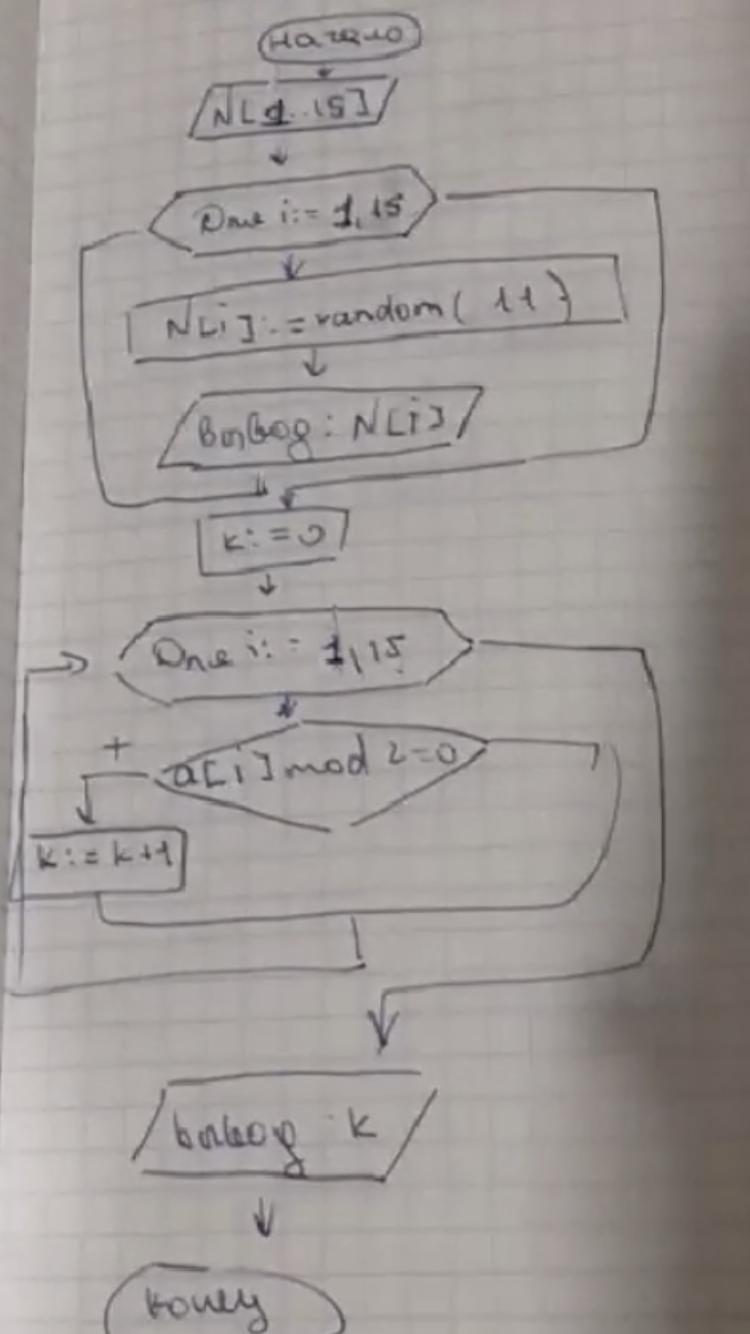 начало
N[1..15]
Для i:= 1,15
N[i]:=random(11)
Вывод: N[i]
k:=0
Для i:= 1,15
+
a[i] mod 2=0
k:=k+1
вывод: k
конец